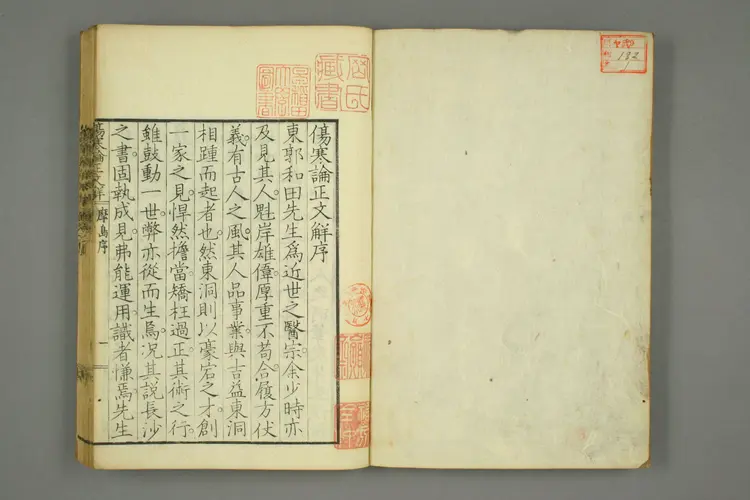 192
傷寒論正文解序
東郭和田先生為近世之醫宗余少時亦
及見其人魁岸雄偉厚重不苟合履方伏
義有古人之風其人品事業與吉益東洞
相踵而起者也然東洞則以豪宕之才創
一家之見悍然擔當矯枉過正其術之行
雖鼓動一世弊亦從而生焉況其說長沙
之書固執成見弗能運用識者慊焉先生
摩島序
一